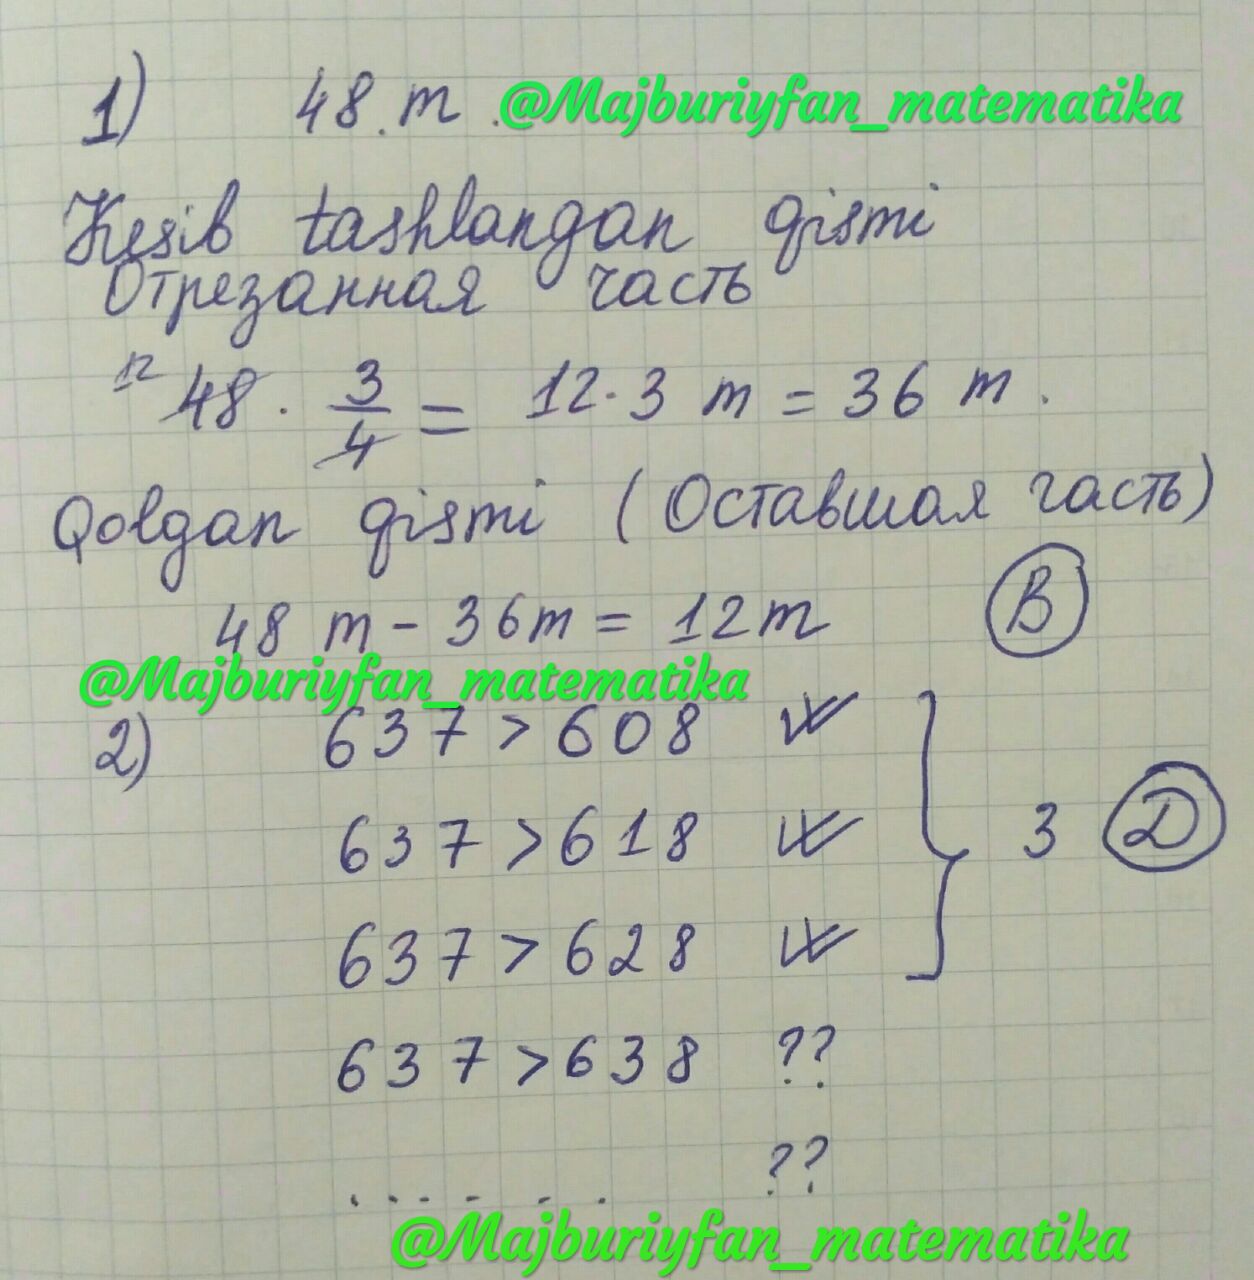 1) 48 m. @Majburiyfan_matematika
Kesib tashlangan qismi
Отрезанная часть
12 48 · 3/4 = 12 · 3 m = 36 m.
Qolgan qismi (Оставшая часть)
48 m - 36m = 12m B
@Majburiyfan_matematika
2) 637 > 608
637 > 618 3 D
637 > 628
637 > 638 ??
...... ??
@Majburiyfan_matematika